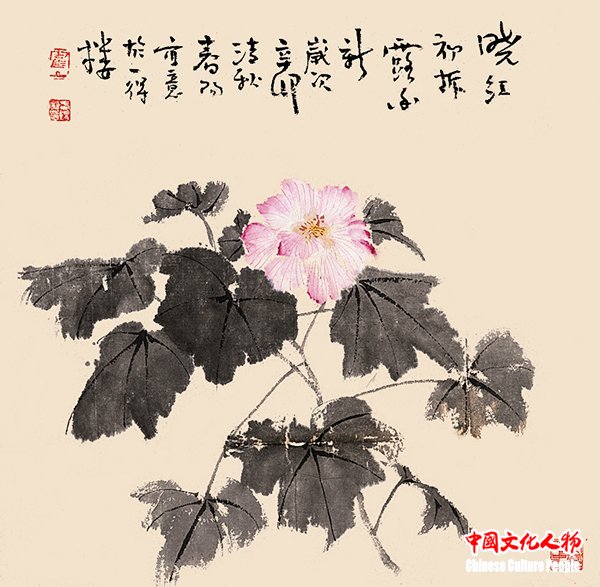 晓红
初拆
露香
新
岁次
辛卯
清秋
春阳
写意
於一得
楼
中國文化人物
Chinese Culture People